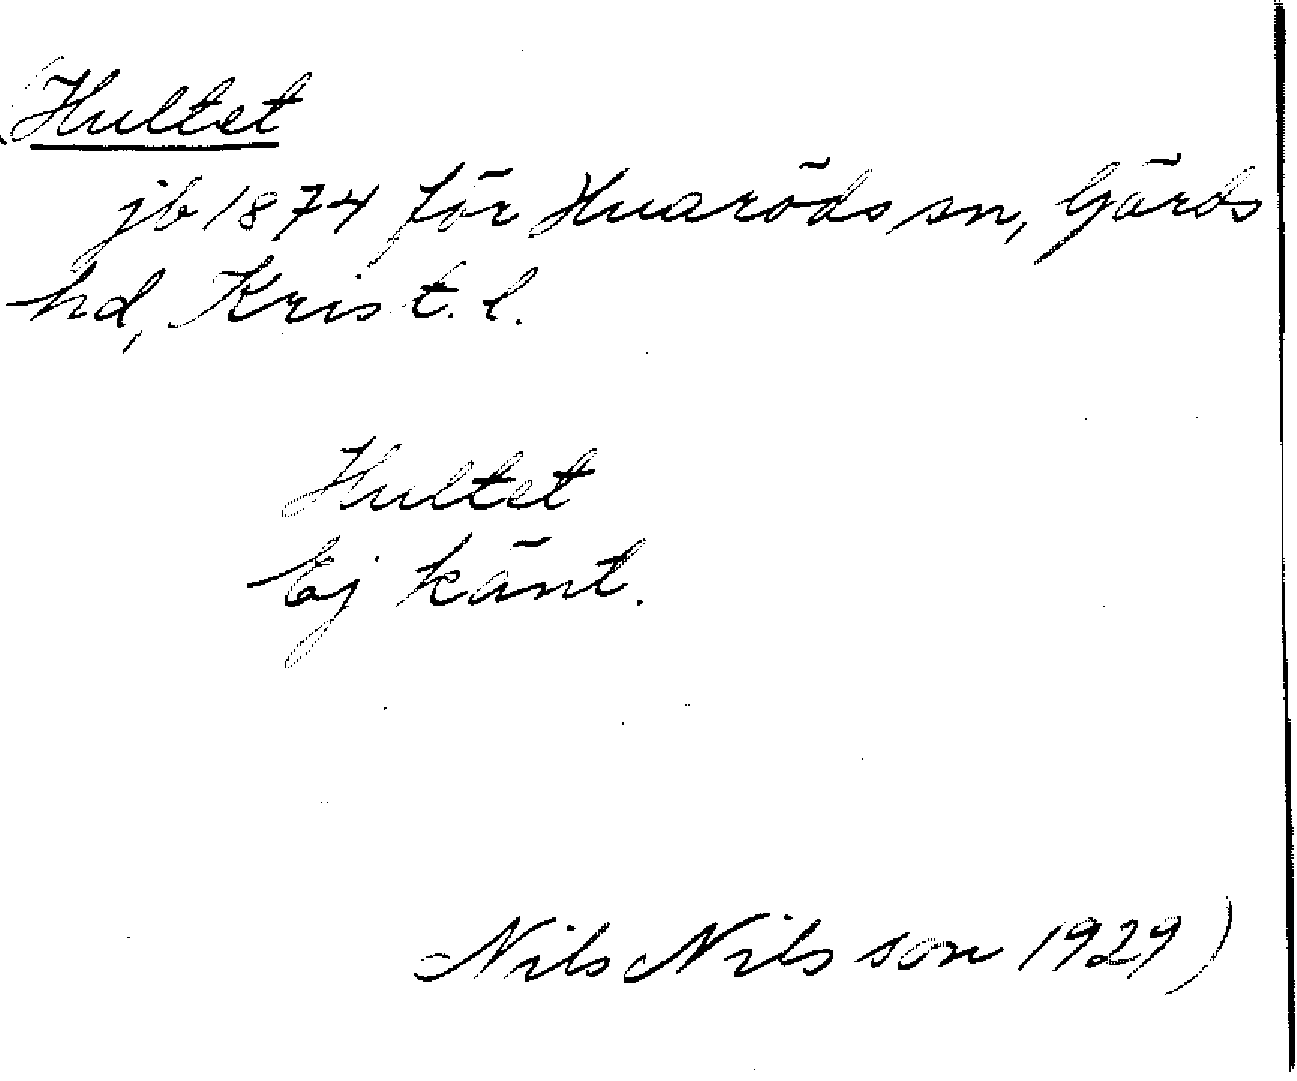 (Hultet
jb 1874 för Huaröds sn, Gärds
hd, Krist. l.
Hultet
Ej känt.
Nils Nilsson 1929)